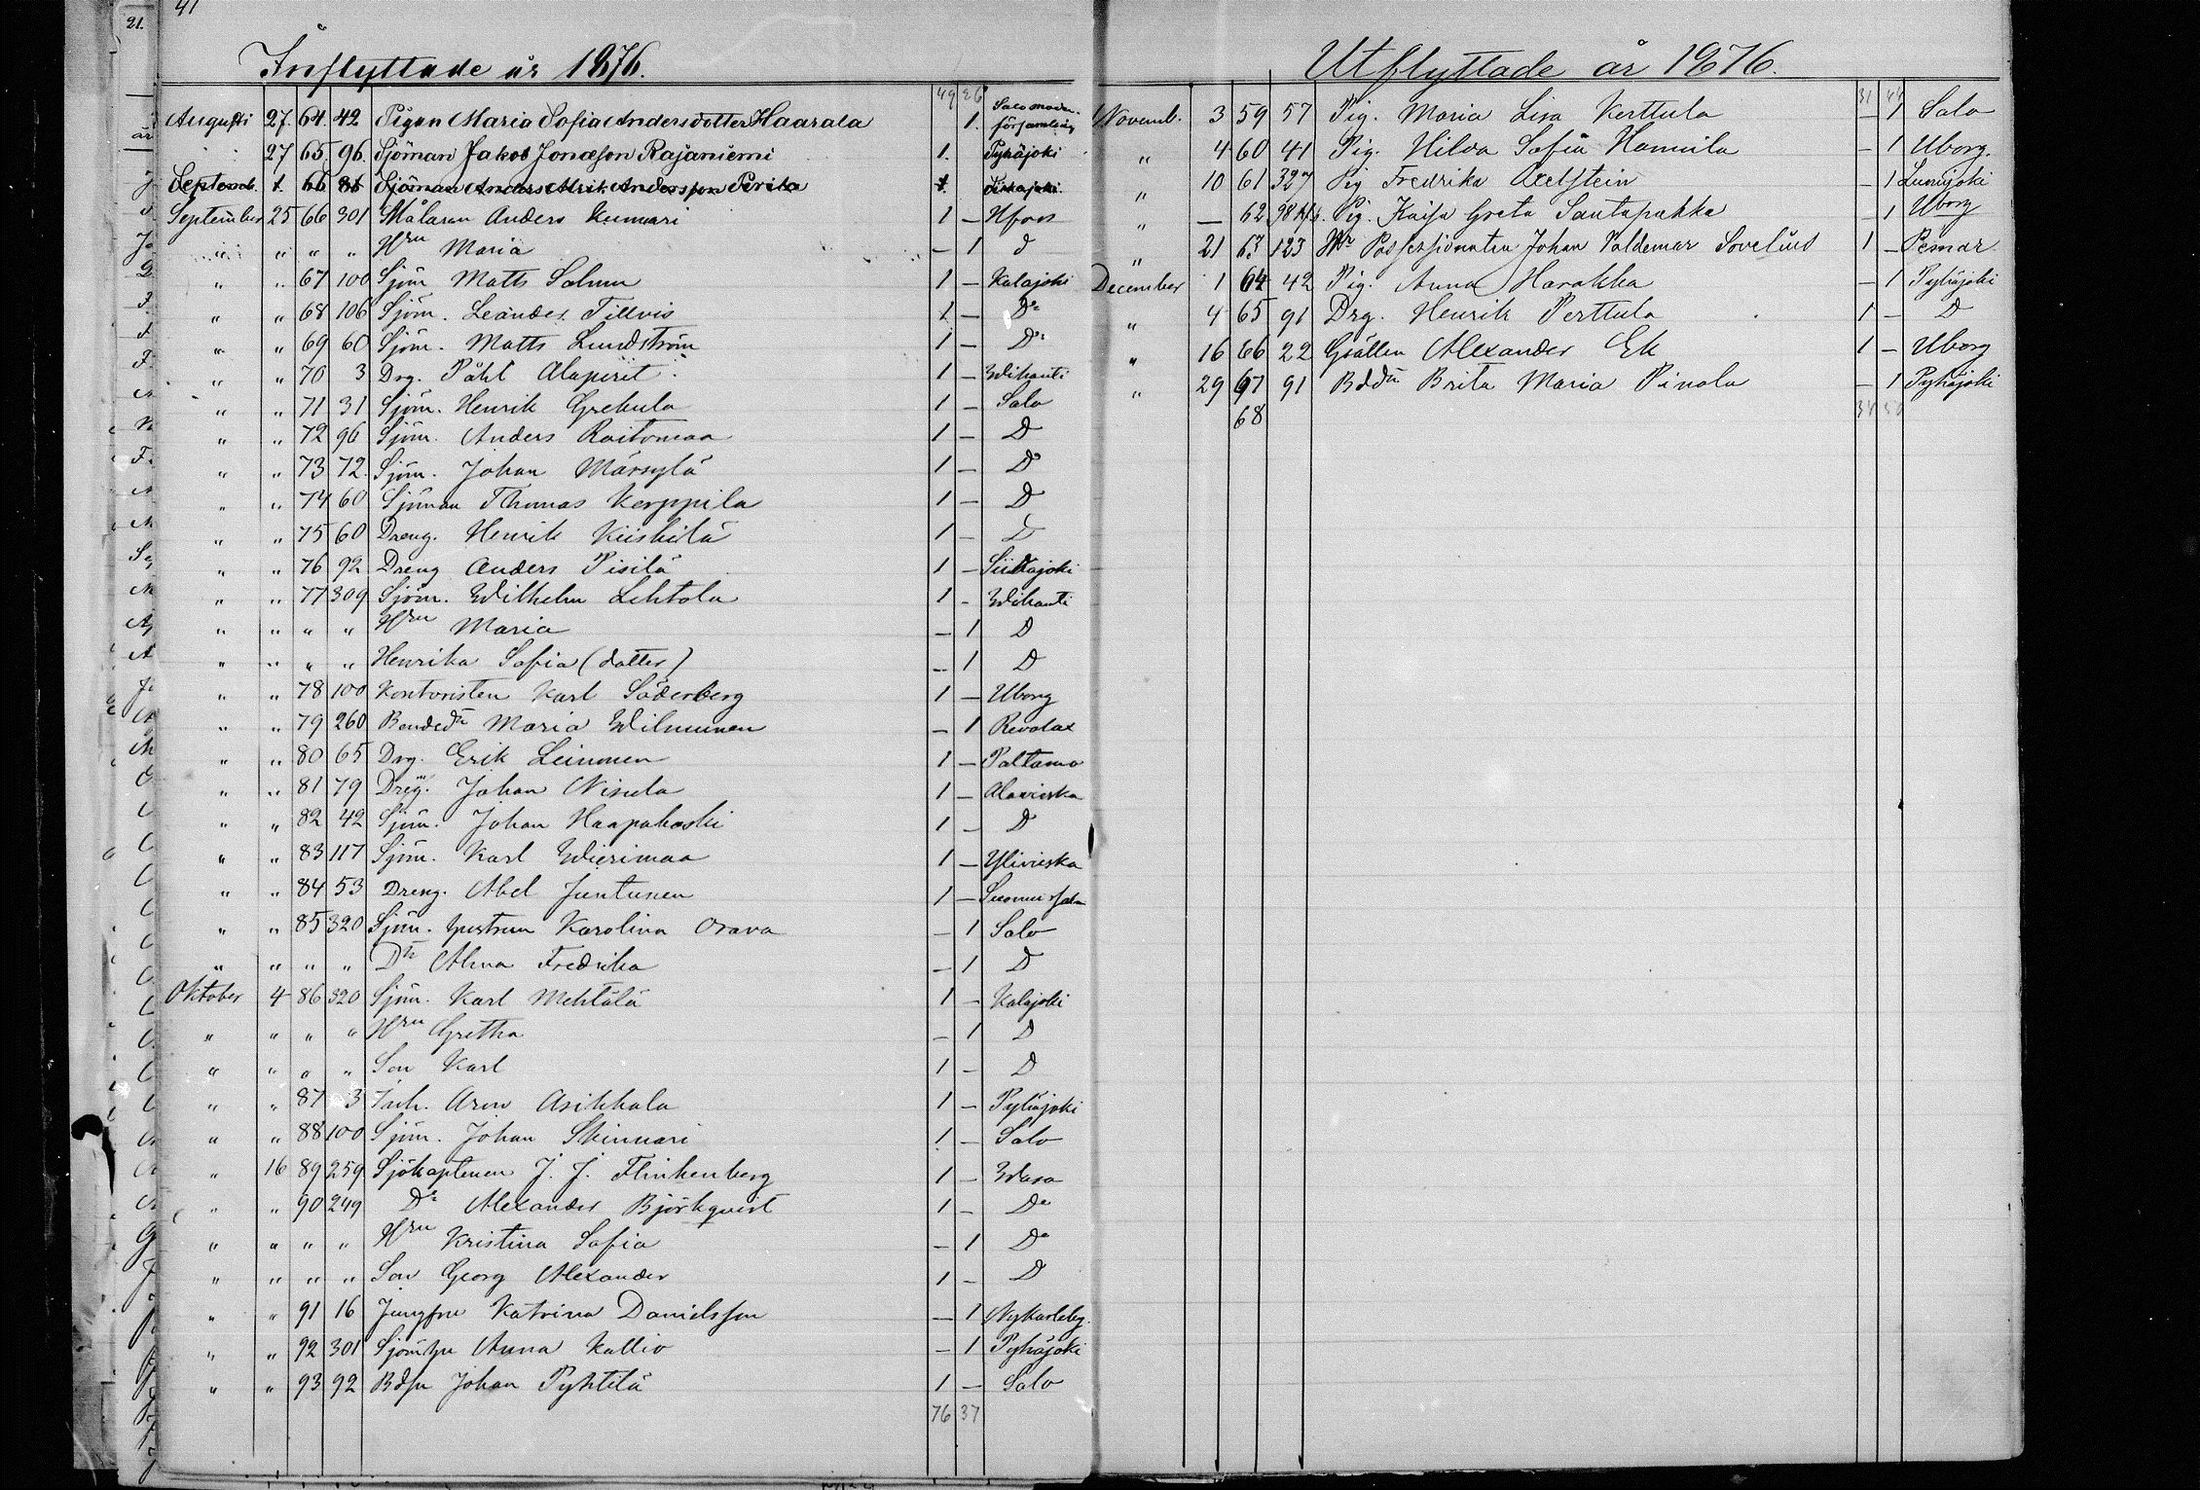 41
21.
Inflyttade år 1876.
49 26
Augusti 27 64 42 Pigan Maria Sofia Andersdotter Haarala 1. Salo moder församling
27 65 96 Sjöman Jakob Jonasson Rajaniemi 1. Pyhäjoki
Septemb. 1. 66 86 Sjöman Anders Anderssson
September 25 66 301 Målaren Anders Kumari 1 —
" " " " Hru Maria — 1 d
" " 67 100 Sjöm Matts Salmu 1 — Kalajoki
" " 68 106 Sjöm. Leander Tillvis 1 — Do
" " 69 60 Sjöm. Matts Lundström 1 — Do
" " 70 3 Drg. Påhl Alapirit 1 — Wihanti
" " 71 31 Sjöm. Henrik Grekula 1 — Salo
" " 72 96 Sjöm. Anders Raitomaa 1 — D
" " 73 72. Sjöm. Johan Märsylä 1 — Do
" " 74 60 Sjöman Thomas Kerppila 1 — D
" " 75 60 Dreng. Henrik Kiiskilä 1 — D
" " 76 92 Dreng Anders Pisilä 1 — Siikajoki
" " 77 309 Sjöm. Wilhelm Lehtola 1 - Wihanti
" " " " Hru Maria — 1 D
" " " " Henrika Sofia (dotter) — 1 D
" " 78 100 Kontoristen Karl Söderberg 1 — Uborg
" " 79 260 Bonded:r Maria Wilmunen — 1 Revolax
" " 80 65 Drg. Erik Leinonen 1 — Paltamo
" " 81 79 Dreg. Johan Nisula 1 — Alavieska
" " 82 42 Sjöm. Johan Haapakoski 1 — D
" " 83 117 Sjöm. Karl Wierimaa 1 — Ylivieska
" " 84 53 Dreng. Abel Juntunen 1 — Suomussalm
" " 85 320 Sjöm. hustrun Karolina Orava — 1 Salo
" " " " Dtr Alma Fredrika — 1 D
Oktober 4 86 320 Sjöm. Karl Mehtälä 1 - Kalajoki
" " " " Hru Gretha — 1 D
" " " " Son Karl 1 — D
" " 87 3 Inh. Aron Asikkala 1 — Pyhäjoki
" " 88 100 Sjöm. Johan Skinnari 1 — Salo
" 16 89 259 Sjökaptenen J. J. Flinkenberg 1 — Wasa
" " 90 249 Do Alexander Björkqvist 1 — Do
" " " " Hru Kristina Sofia — 1 Do
" " " " Son Georg Alexander 1 — D
" " 91 16 Jungfru Katrina Danielsson — 1 Nykarleby.
" " 92 301 Sjömhu Anna Kallio — 1 Pyhäjoki
" " 93 92 Bdsn Johan Pyhtilä 1 — Salo
76 37
Utflyttade år 1876.
31 44
Novemb. 3 59 57 Pig. Maria Lisa Kerttula — 1 Salo
" 4 60 41 Pig. Hilda Sofia Hannila — 1 Uborg.
" 10 61 327 Pig Fredrika Axelstein — 1 Lumijoki
" — 62 98 Pig. Kajsa Greta Santapakka — 1 Uborg
" 21 63 123 Hr Possessionaten Johan Valdemar Sovelius 1 — Pemar
December 1 64 42 Pig. Anna Harakka — 1 Pyhäjoki
" 4 65 91 Drg. Henrik Perttula 1 — D
" 16 66 22 Gsällen Alexander Ek 1 — Uborg
" 29 67 91 Bddtr Brita Maria Pinola — 1 Pyhäjoki
68
34 50